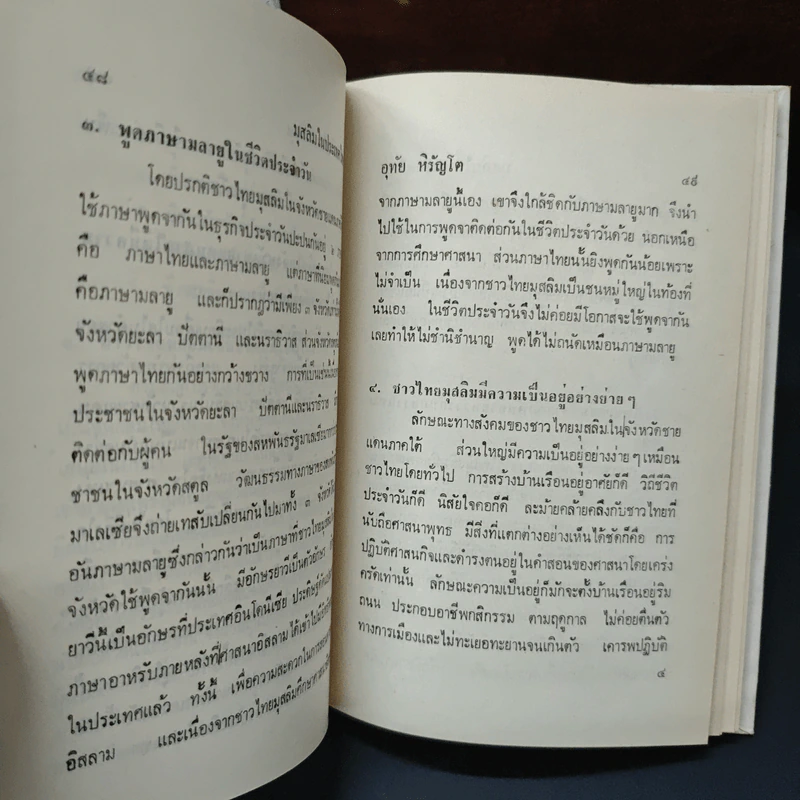 ๔๘
มุสลิมในประเทศ
๓. พูดภาษามลายูในชีวิตประจำวัน
โดยปรกติชาวไทยมุสลิมในจังหวัดชายแดน
ใช้ภาษาพูดจากันในธุรกิจประจำวันปะปนกันอยู่ ๒
คือ ภาษาไทยและภาษามลายู แต่ภาษาที่นิยมพูด
คือภาษามลายู และก็ปรากฏว่ามีเพียง ๓ จังหวัด
จังหวัดยะลา ปัตตานี และนราธิวาส ส่วนจังหวัด
พูดภาษาไทยกันอย่างกว้างขวาง การที่เป็นเช่นนี้
ประชาชนในจังหวัดยะลา ปัตตานีและนราธิวาส
ติดต่อกับผู้คน ในรัฐของสหพันธรัฐมาเลเซียมากกว่า
ชาชนในจังหวัดสตูล วัฒนธรรมทางภาษาของ
มาเลเซียจึงถ่ายเทสับเปลี่ยนกันไปมาทั้ง ๓ จังหวัด
อันภาษามลายูซึ่งกล่าวกันว่าเป็นภาษาที่ชาวไทยมุสลิม
จังหวัดใช้พูดจากันนั้น มีอักษรยาวีเป็นตัวอักษร
ยาวีนี้เป็นอักษรที่ประเทศอินโดนีเซีย ประดิษฐ์
ภาษาอาหรับภายหลังที่ศาสนาอิสลามได้เข้าไป
ในประเทศแล้ว ทั้งนี้ เพื่อความสะดวกในการ
อิสลาม และเนื่องจากชาวไทยมุสลิมศึกษา
อุทัย หิรัญโต
๔๙
จากภาษามลายูนี้เอง เขาจึงใกล้ชิดกับภาษามลายูมาก จึงนำ
ไปใช้ในการพูดจาติดต่อกันในชีวิตประจำวันด้วย นอกเหนือ
จากการศึกษาศาสนา ส่วนภาษาไทยนั้นยิ่งพูดกันน้อยเพราะ
ไม่จำเป็น เนื่องจากชาวไทยมุสลิมเป็นชนหมู่ใหญ่ในท้องที่
นั่นเอง ในชีวิตประจำวันจึงไม่ค่อยมีโอกาสจะใช้พูดจากัน
เลยทำให้ไม่ชำนิชำนาญ พูดได้ไม่ถนัดเหมือนภาษามลายู
๔. ชาวไทยมุสลิมมีความเป็นอยู่อย่างง่าย ๆ
ลักษณะทางสังคมของชาวไทยมุสลิมในจังหวัดชาย
แดนภาคใต้ ส่วนใหญ่มีความเป็นอยู่อย่างง่าย ๆ เหมือน
ชาวไทยโดยทั่วไป การสร้างบ้านเรือนอยู่อาศัยก็ดี วิถีชีวิต
ประจำวันก็ดี นิสัยใจคอก็ดี ละม้ายคล้ายคลึงกับชาวไทยที่
นับถือศาสนาพุทธ มีสิ่งที่แตกต่างอย่างเห็นได้ชัดก็คือ การ
ปฏิบัติศาสนกิจและดำรงตนอยู่ในคำสอนของศาสนาโดยเคร่ง
ครัดเท่านั้น ลักษณะความเป็นอยู่ก็มักจะตั้งบ้านเรือนอยู่ริม
ถนน ประกอบอาชีพกสิกรรม ตามฤดูกาล ไม่ค่อยตื่นตัว
ทางการเมืองและไม่ทะเยอทะยานจนเกินตัว เคารพปฏิบัติ
๔